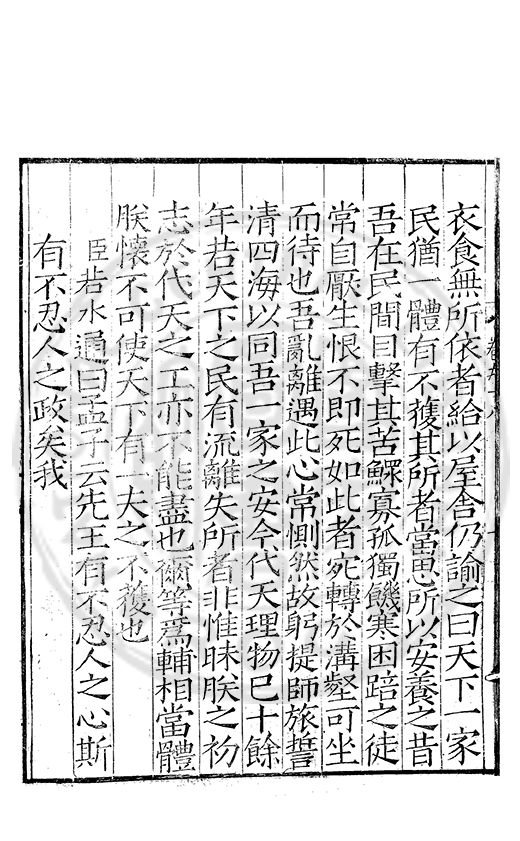 衣食無所依者給以屋舍仍諭之曰天下一家
民猶一體有不獲其所者當思所以安養之昔
吾在民間目擊其苦鰥寡孤獨饑寒困踣之徒
常自厭生恨不即死如此者宛轉於溝壑可坐
而待也吾亂離遇此心常惻然故躬提師旅誓
清四海以同吾一家之安今代天理物已十餘
年若天下之民有流離失所者非惟昧朕之初
志於代天之工亦不能盡也爾等為輔相當體
朕懷不可使天下有一夫之不獲也
臣若水通曰孟子云先王有不忍人之心斯
有不忍人之政矣我